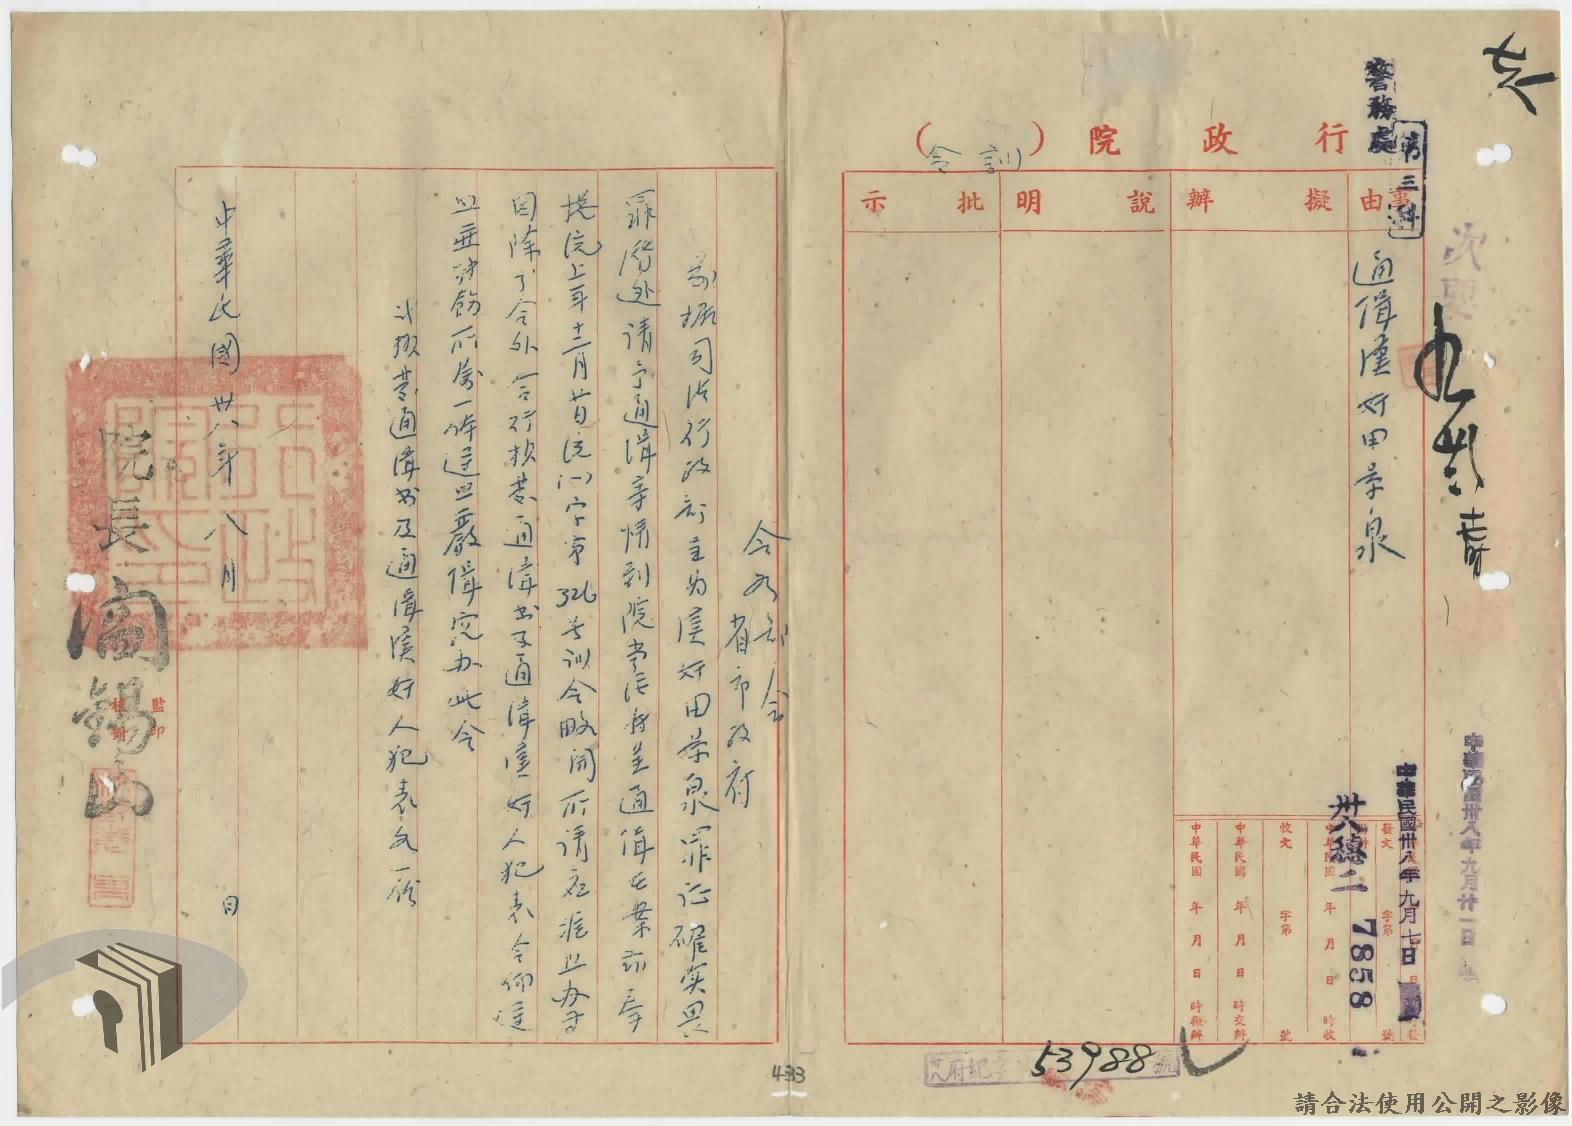 行政院（訓令）
事由
擬辦
說明
批示
通緝漢奸田景泉
警務處
第三科
中華民國卅八年九月七日
卅八穗二 7858
中華民國卅八年九月廿一日
發文 字第 號
中華民國 年 月 日 時收
收文 字第 號
中華民國 年 月 日 時交辦
中華民國 年 月 日 時擬辦
53988 號
令各部會
省市政府
前據司法行政部呈為漢奸田景泉罪証確實畏
罪潛逃請予通緝等情到院當經
院上年十二月廿日 字第326號訓令略開所請應准照辦等
因除分令外合行檢發通緝書及通緝漢奸人犯表令仰遵
照並轉飭所屬一体遵照嚴緝究办此令
計檢發通緝書及通緝漢奸人犯表各一份
中華民國卅八年八月 日
院長閻錫山
監印
校對
433
請合法使用公開之影像